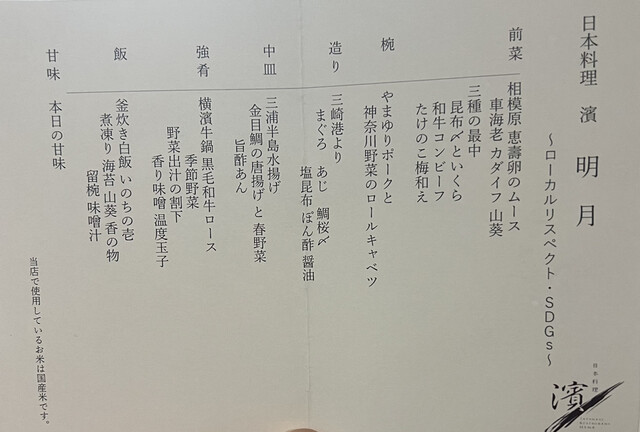 日本料理 濱 明月
～ローカルリスペクト・SDGs～
前菜
相模原 恵壽卵のムース
車海老 カダイフ 山葵
三種の最中
昆布〆といくら
和牛コンビーフ
たけのこ梅和え
椀
やまゆりポークと
神奈川野菜のロールキャベツ
造り
三崎港より
まぐろ あじ 鯛桜〆
塩昆布 ぽん酢 醤油
中皿
三浦半島水揚げ
金目鯛の唐揚げと春野菜
旨酢あん
強肴
横濱牛鍋 黒毛和牛ロース
季節野菜
野菜出汁の割下
香り味噌 温度玉子
飯
釜炊き白飯 いのちの壱
煮凍り 海苔 山葵 香の物
留椀 味噌汁
甘味
本日の甘味
当店で使用しているお米は国産米です。
日本料理
濱